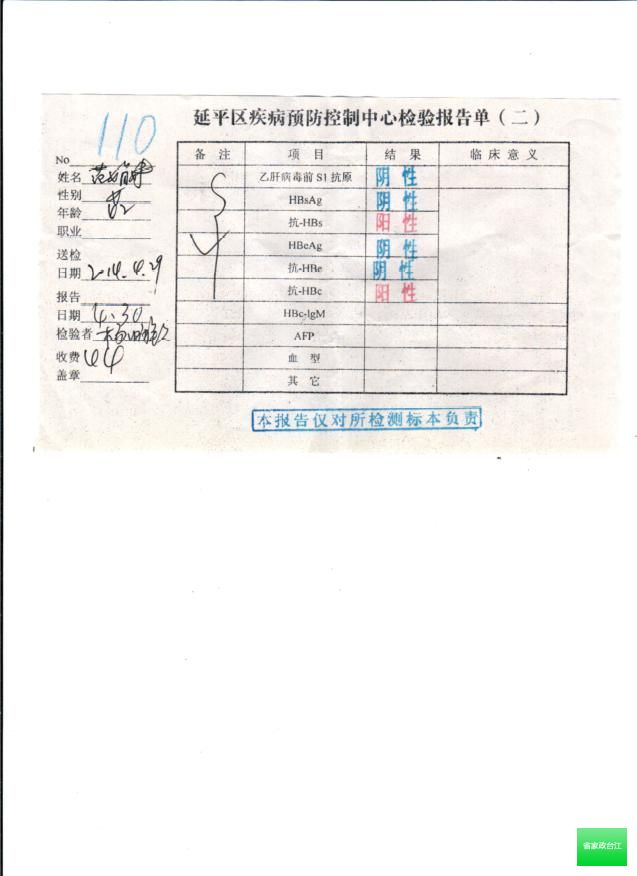 延平区疾病预防控制中心检验报告单(二)
110
No
姓名
性别
年龄
职业
送检
日期 2014.4.29
报告
日期 4.30
检验者
收费 44
盖章
备 注 项 目 结 果 临床意义
乙肝病毒前 S1 抗原 阴 性
HBsAg 阴 性
抗-HBs 阳 性
HBeAg 阴 性
抗-HBe 阴 性
抗-HBc 阳 性
HBc-lgM
AFP
血 型
其 它
本报告仅对所检测标本负责
省家政台江